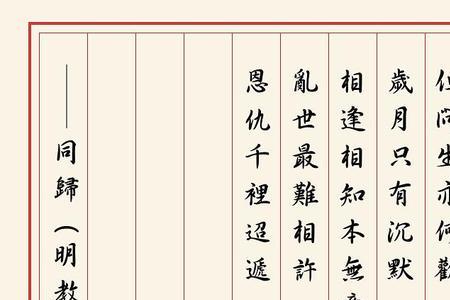 歲月只有沉默
相逢相知本無
亂世最難相許
恩仇千裡迢遞
——同歸（明教